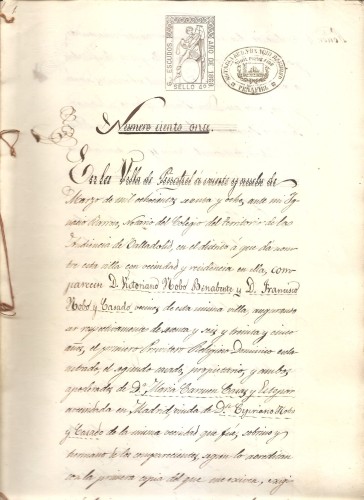 ESCUDOS
AÑO DE 1868
SELLO 4º
PEÑAFIEL
Numero ciento once.
En la Villa de Peñafiel á veinte y nueve de
Marzo de mil ochocientos sesenta y ocho, ante mi
Notario del Colegio del Territorio de la
Audiencia de Valladolid, en el distrito
esta villa con vecindad y residencia en ella, com-
parecen D. Victoriano Nobo Benabente y D. Francisco
Nobo y Casado, vecinos de esta misma villa,
ser respectivamente de sesenta y seis y treinta y cinco
años, el primero Presvitero Religioso Dominico esclaus-
trado, el segundo casado, propietarios, y ambos
apoderados de Dª Maria Carmen y
avecindada en Madrid, viuda de D. Cipriano Nobo
y Casado de la misma vecindad que fué, sobrino y
hermano de los comparecientes, segun lo acreditan
con la primera copia del que